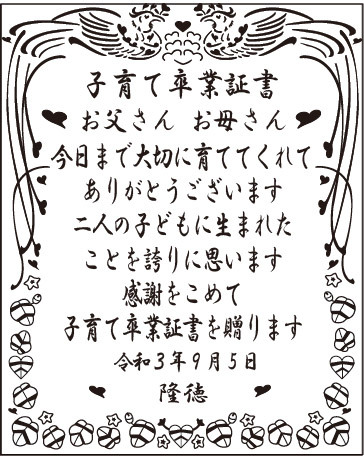 子育て卒業証書
お父さん お母さん
今日まで大切に育ててくれて
ありがとうございます
二人の子どもに生まれた
ことを誇りに思います
感謝をこめて
子育て卒業証書を贈ります
令和3年9月5日
隆徳